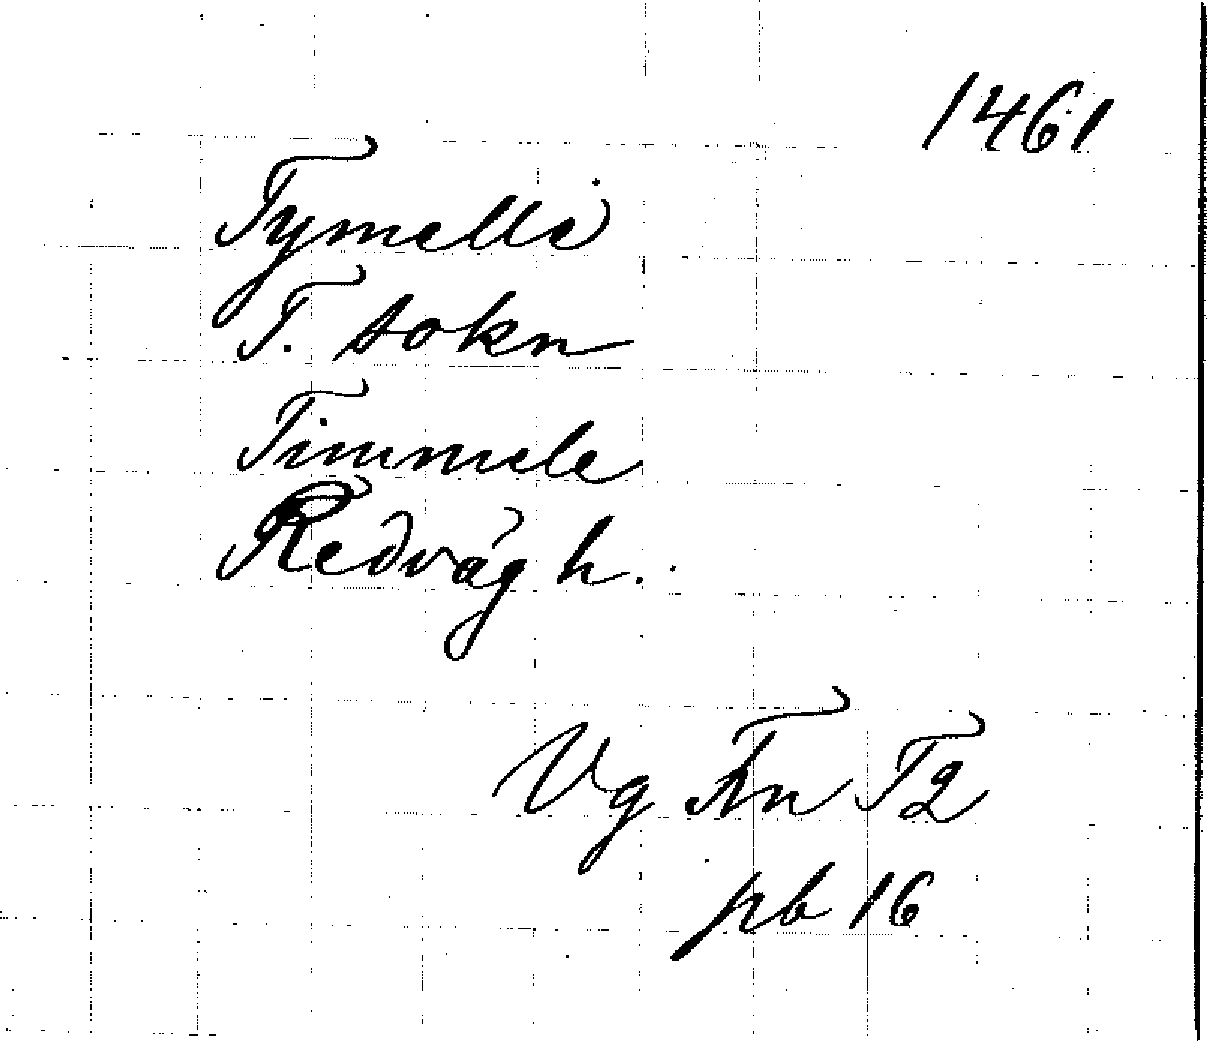 1461
Tymelle
T. sokn
Timmele
Redväg h.
Vg Fn T2
pb 16